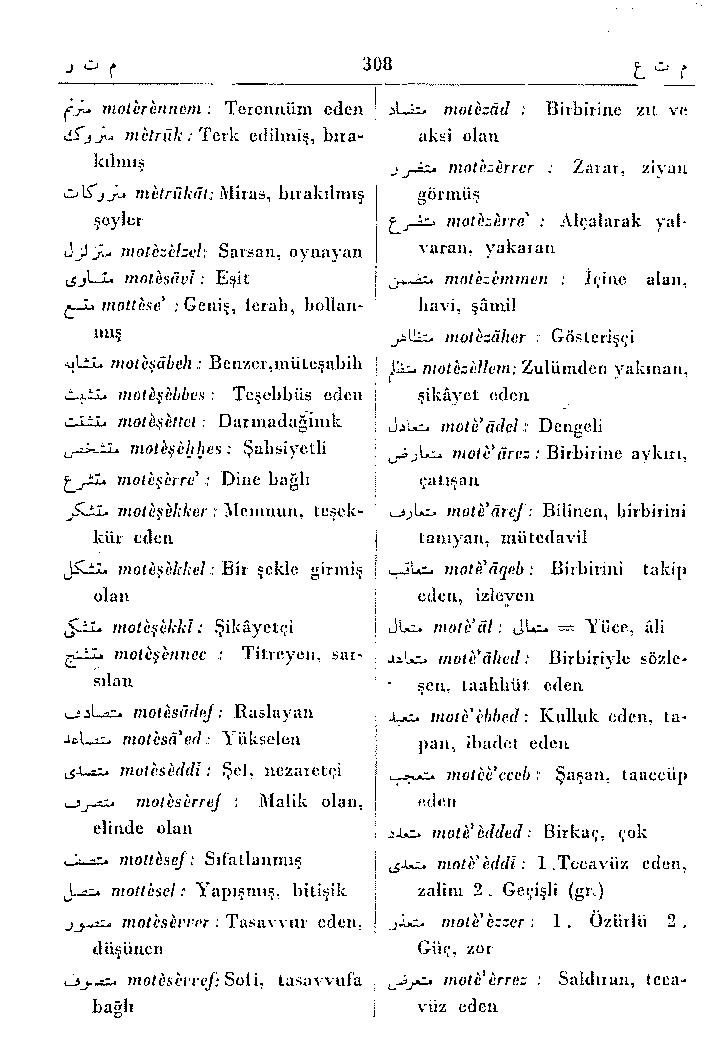 م ت ر 308 م ت ع
مترنم motèrènnem : Terennüm eden
متروك mètrūk : Terk edilmiş, bıra-
kılmış
متروكات mètrūkāt: Miras, bırakılmış
şeyler
متزلزل motèzèlzel: Sarsan, oynayan
متساوى motèsāvī : Eşit
متسع mottèse' : Geniş, ferah, bollan-
mış
متشابه motèşābeh : Benzer,müteşabih
متشبث motèşèbbes : Teşebbüs eden
متشتت motèşèttet : Darmadağınık
متشخص motèşèhhes : Şahsiyetli
متشرع motèşèrre' : Dine bağlı
متشكر motèşèkker : Memnun, teşek-
kür eden
متشكل motèşèkkel : Bir şekle girmiş
olan
متشكى motèşèkkī : Şikâyetçi
متشنج motèşènnec : Titreyen, sar-
sılan
متصادف motèsādef : Raslayan
متصاعد motèsā'ed : Yükselen
متصدى motèsèddī : Şef, nezaretçi
متصرف motèsèrref : Malik olan,
elinde olan
متصف mottèsef : Sıfatlanmış
متصل mottèsel : Yapışmış, bitişik
متصور motèsèvver : Tasavvur eden,
düşünen
متصوف motèsèvvef: Sofi, tasavvufa
bağlı
متضاد motèzād : Birbirine zıt ve
aksi olan
متضرر motèzèrrer : Zarar, ziyan
görmüş
متضرع motèzèrre' : Alçalarak yal-
varan, yakaran
متضمن motèzèmmen : İçine alan,
havi, şâmil
متظاهر motèzāher : Gösterişçi
متظلم motèzèllem: Zulümden yakınan,
şikâyet eden
متعادل motè'ādel : Dengeli
متعارض motè'ārez : Birbirine aykırı,
çatışan
متعارف motè'āref : Bilinen, birbirini
tanıyan, mütedavil
متعاقب motè'āqeb : Birbirini takip
eden, izleyen
متعال motè'āl : متعالى = Yüce, âli
متعاهد motè'āhed : Birbiriyle sözle-
şen, taahhüt eden
متعبد motè'èbbed : Kulluk eden, ta-
pan, ibadet eden
متعجب motèè'cceb : Şaşan, taaccüp
eden
متعدد motè'èdded : Birkaç, çok
متعدى motè'èddī : 1.Tecavüz eden,
zalim 2. Geçişli (gr.)
متعذر motè'èzzer : 1. Özürlü 2.
Güç, zor
متعرض motè'èrrez : Saldıran, teca-
vüz eden